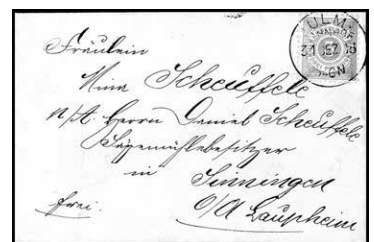 ULM
31 DEZ 75
Fräulein
Mina Scheuffele
p/A. Herrn Daniel Scheuffele
Sägemühlebesitzer
in
Sinningen
O/A Laupheim
frei.